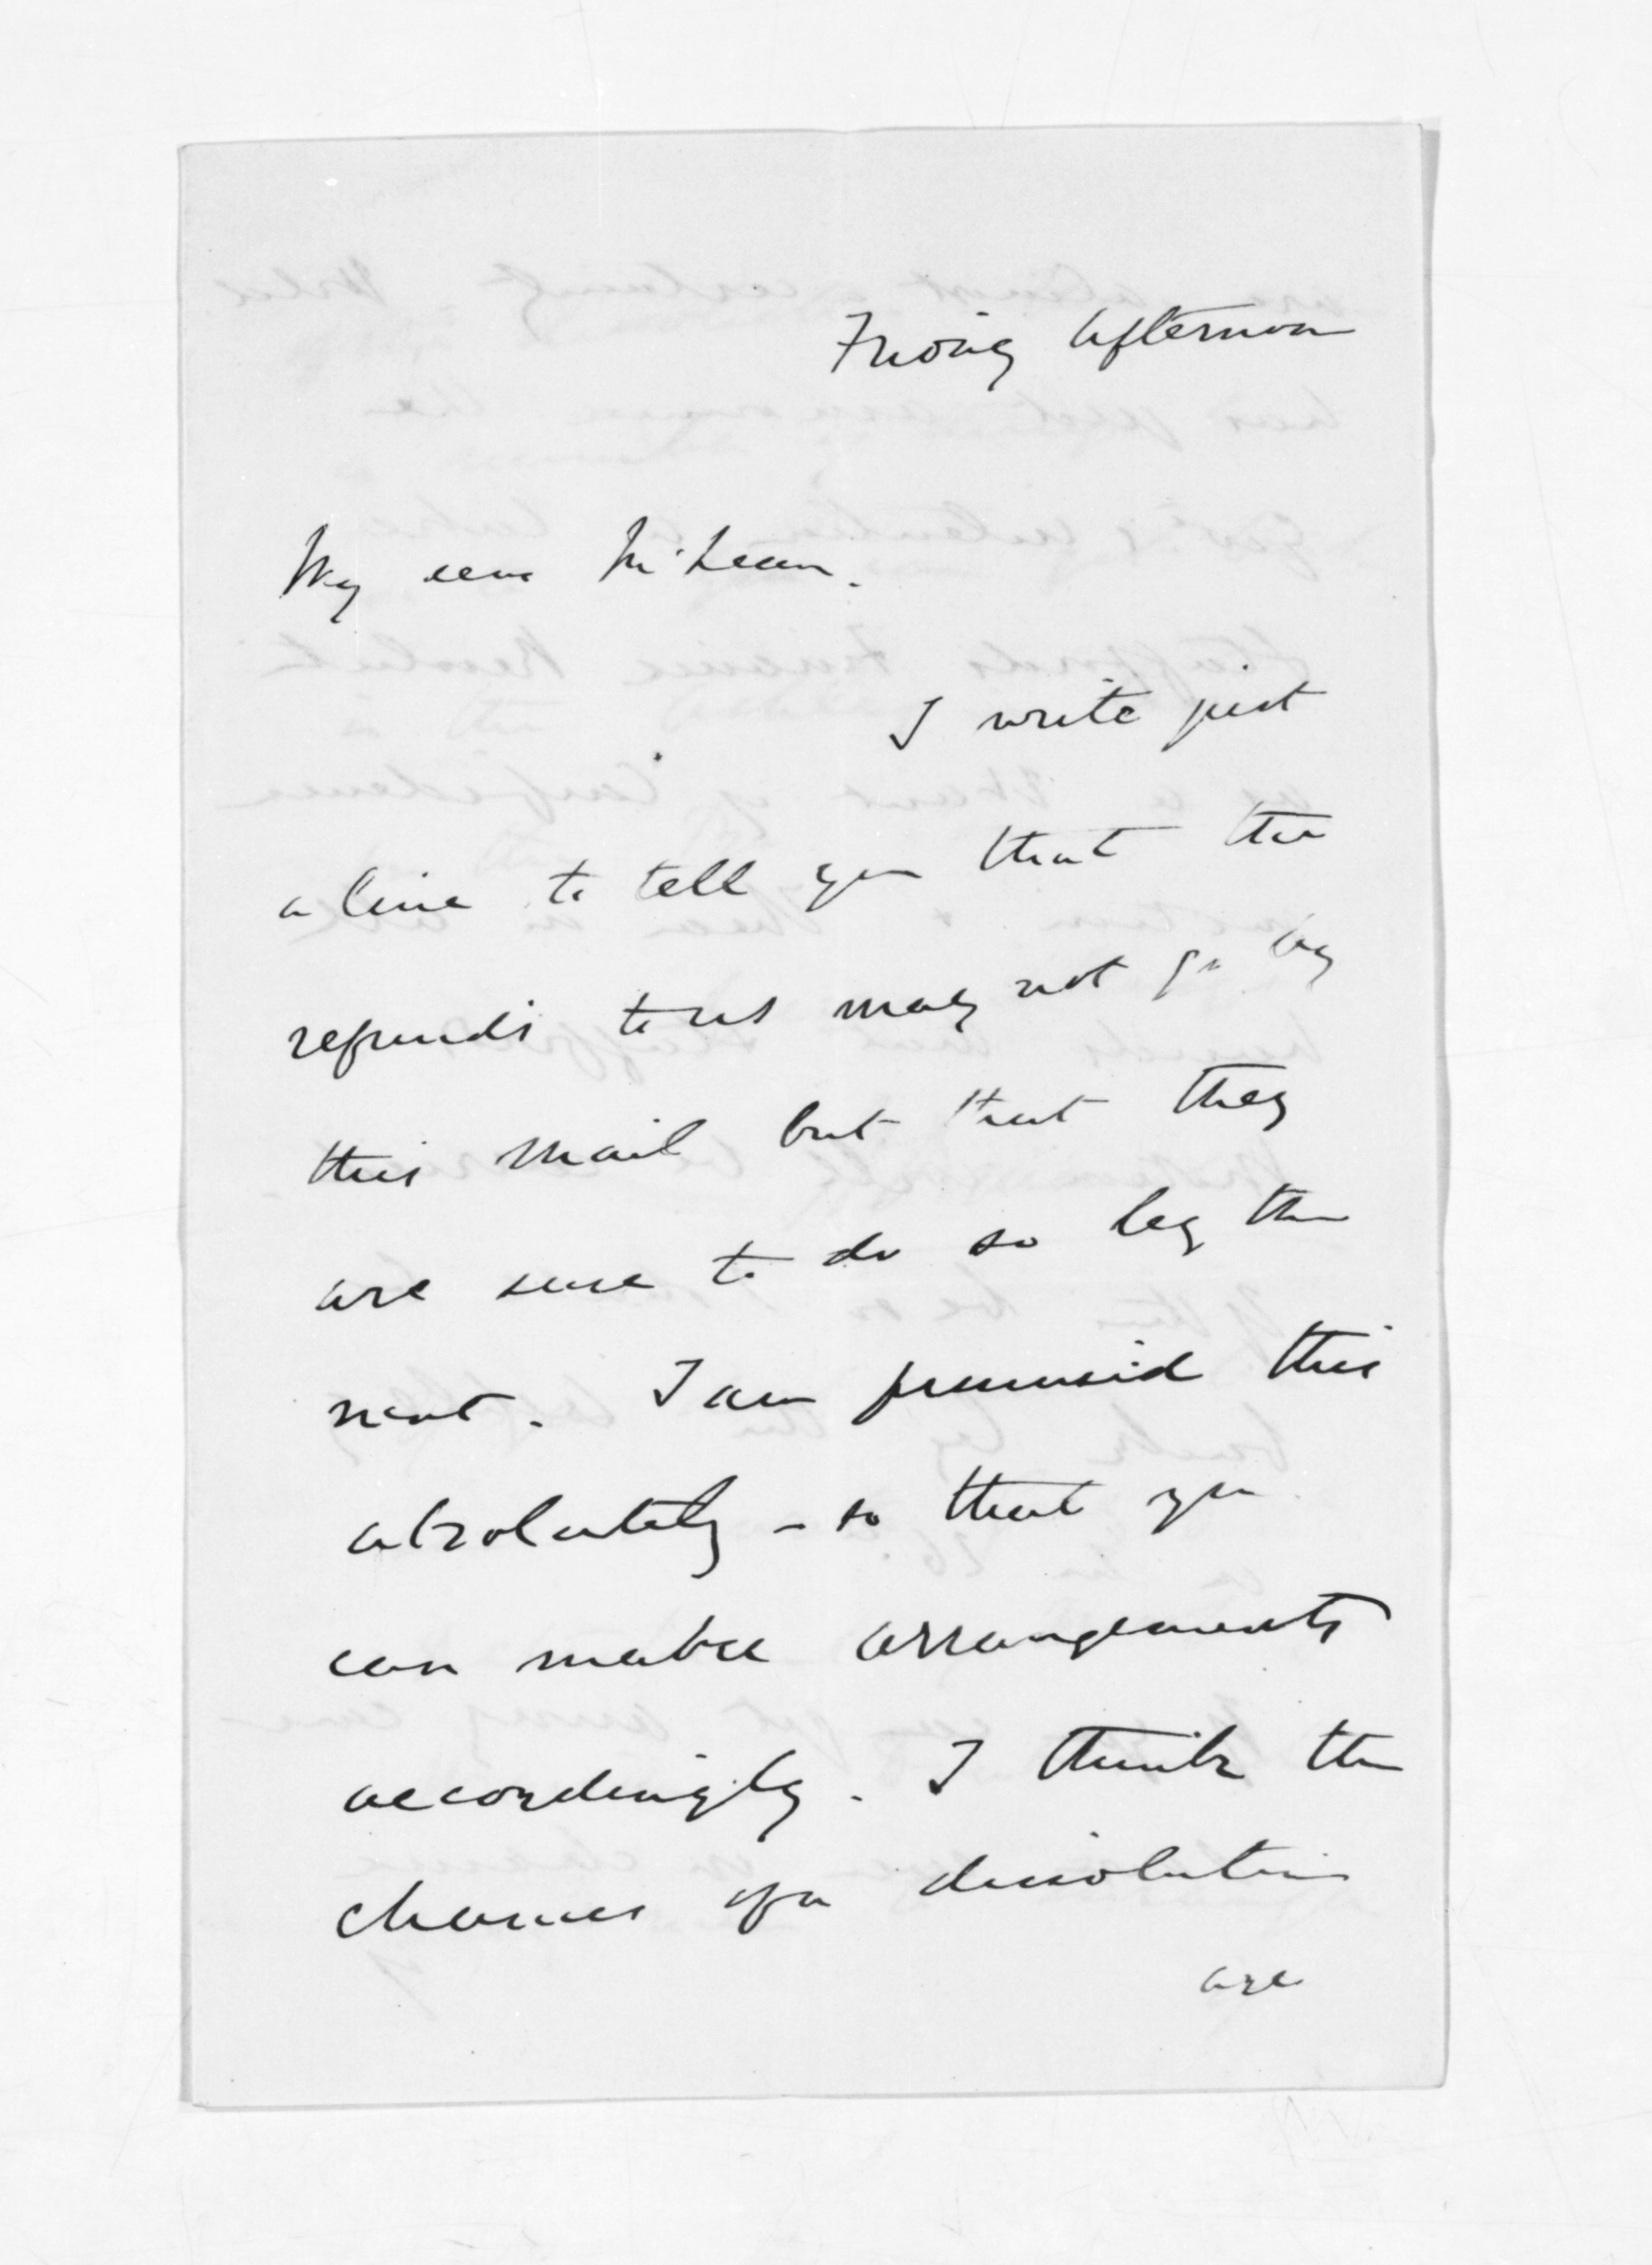 Friday afternoon
My dear McLean.
I write just
a line to tell you that the
refunds to us may not go by
this mail but that they
are sure to do so by the
next. I am promised this
absolutely - so that you
can make arrangements
accordingly. I think the
chances of a dissolution
are